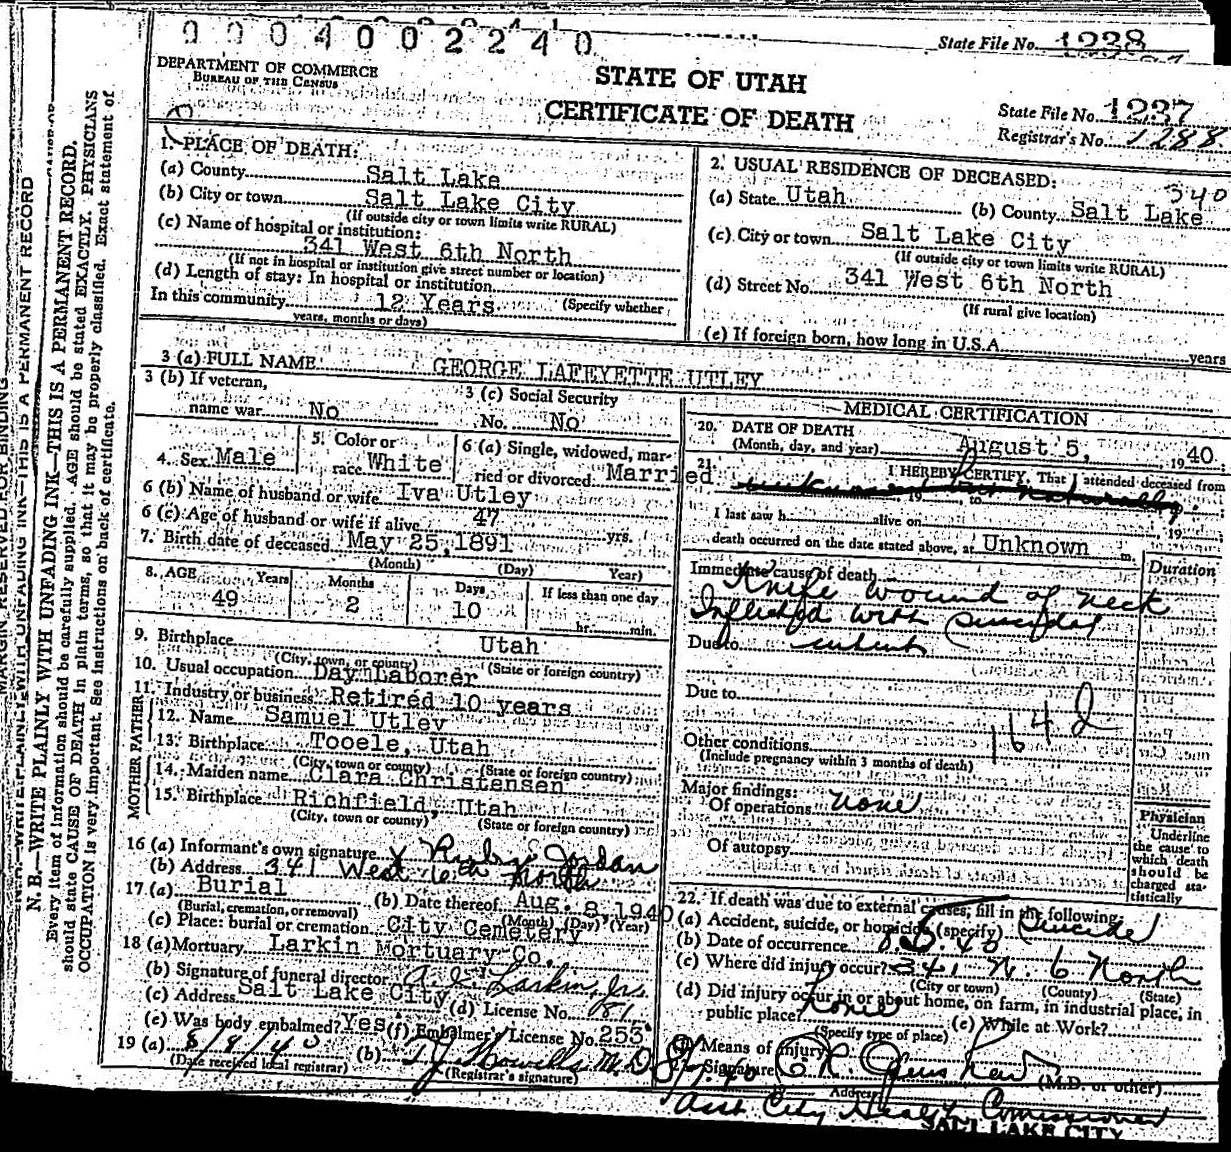 0 0 0 4 0 0 2 2 4 0
State File No. 1238
DEPARTMENT OF COMMERCE
BUREAU OF THE CENSUS
STATE OF UTAH
CERTIFICATE OF DEATH
State File No. 1237
Registrar's No. 1288
MARGIN RESERVED FOR BINDING
N. B.—WRITE PLAINLY WITH UNFADING INK—THIS IS A PERMANENT RECORD.
Every item of information should be carefully supplied. AGE should be stated EXACTLY. PHYSICIANS
should state CAUSE OF DEATH in plain terms, so that it may be properly classified. Exact statement of
OCCUPATION is very important. See instructions on back of certificate.
1. PLACE OF DEATH:
(a) County Salt Lake
(b) City or town Salt Lake City
(If outside city or town limits write RURAL)
(c) Name of hospital or institution:
341 West 6th North
(If not in hospital or institution give street number or location)
(d) Length of stay: In hospital or institution
In this community 12 Years (Specify whether
years, months or days)
2. USUAL RESIDENCE OF DECEASED:
340
(a) State Utah (b) County Salt Lake
(c) City or town Salt Lake City
(If outside city or town limits write RURAL)
(d) Street No. 341 West 6th North
(If rural give location)
(e) If foreign born, how long in U.S.A. years
3 (a) FULL NAME GEORGE LAFEYETTE UTLEY
3 (b) If veteran,
name war No
3 (c) Social Security
No. No
4. Sex Male
5. Color or
race White
6 (a) Single, widowed, mar-
ried or divorced Married
6 (b) Name of husband or wife Iva Utley
6 (c) Age of husband or wife if alive 47 yrs.
7. Birth date of deceased May 25, 1891
(Month) (Day) Year)
8. AGE Years Months Days If less than one day
49 2 10 hr. min.
9. Birthplace Utah
(City, town, or county) (State or foreign country)
10. Usual occupation Day Laborer
11. Industry or business Retired 10 years
FATHER
12. Name Samuel Utley
13. Birthplace Tooele, Utah
(City, town or county) (State or foreign country)
MOTHER
14. Maiden name Clara Christensen
15. Birthplace Richfield, Utah
(City, town or county) (State or foreign country)
16 (a) Informant's own signature X Jordan
(b) Address 341 West 6th North
17 (a) Burial (b) Date thereof Aug. 8, 1940
(Burial, cremation, or removal) (Month) (Day) (Year)
(c) Place: burial or cremation City Cemetery
18 (a) Mortuary Larkin Mortuary Co.
(b) Signature of funeral director A. C. Larkin, Jr.
(c) Address Salt Lake City (d) License No. 81
(e) Was body embalmed? Yes (f) Embalmer's License No. 253
19 (a) 8/8/40 (b) T.J. Howells M.D.
(Date received local registrar) (Registrar's signature)
MEDICAL CERTIFICATION
20. DATE OF DEATH
(Month, day, and year) August 5, 1940
21. I HEREBY CERTIFY, That I attended deceased from
19 to 19
I last saw h alive on 19
death occurred on the date stated above, at Unknown m.
Duration
Immediate cause of death
Knife wound of neck
Inflicted with suicidal
Due to intent
Due to
164 d
Other conditions
(Include pregnancy within 3 months of death)
Major findings:
Of operations none
Of autopsy
Physician
Underline
the cause to
which death
should be
charged sta-
tistically
22. If death was due to external causes, fill in the following:
(a) Accident, suicide, or homicide (specify) Suicide
(b) Date of occurrence 8.5.40
(c) Where did injury occur? 341 N. 6 North
(City or town) (County) (State)
(d) Did injury occur in or about home, on farm, in industrial place, in
public place? Home
(Specify type of place) (e) While at Work?
(f) Means of injury
Signature (M.D. or other)
Address
Asst City Health Comissioner
SALT LAKE CITY